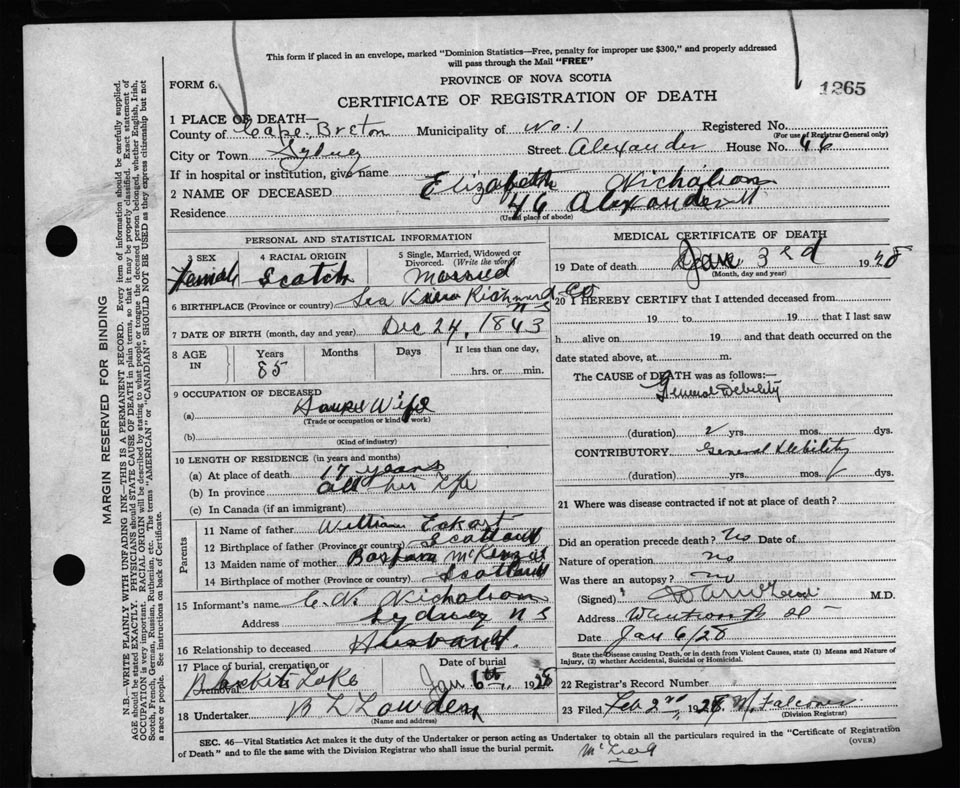 This form if placed in an envelope, marked "Dominion Statistics—Free, penalty for improper use $300," and properly addressed
will pass through the Mail "FREE"
FORM 6.
PROVINCE OF NOVA SCOTIA
1265
CERTIFICATE OF REGISTRATION OF DEATH
1 PLACE OF DEATH—
County of Cape Breton Municipality of No. 1 Registered No.
(For use of Registrar General only)
City or Town Sydney Street Alexander House No. 46
If in hospital or institution, give name
2 NAME OF DECEASED Elizabeth Nicholson
Residence 46 Alexander St
(Usual place of abode)
PERSONAL AND STATISTICAL INFORMATION
3 SEX Female
4 RACIAL ORIGIN Scotch
5 Single, Married, Widowed or Divorced. (Write the word) Married
6 BIRTHPLACE (Province or country) Richmond Co N S
7 DATE OF BIRTH (month, day and year) Dec 24, 1843
8 AGE IN Years 85 Months Days If less than one day, hrs. or min.
9 OCCUPATION OF DECEASED
(a) House Wife
(Trade or occupation or kind of work)
(b)
(Kind of industry)
10 LENGTH OF RESIDENCE (in years and months)
(a) At place of death 17 years
(b) In province all her life
(c) In Canada (if an immigrant)
Parents
11 Name of father William
12 Birthplace of father (Province or country) Scotland
13 Maiden name of mother Barbara McKenzie
14 Birthplace of mother (Province or country) Scotland
15 Informant's name C. W. Nicholson
Address Sydney N S
16 Relationship to deceased Husband.
17 Place of burial, cremation or removal Lake Date of burial Jan 6th, 1928
18 Undertaker B L Lowden
(Name and address)
MEDICAL CERTIFICATE OF DEATH
19 Date of death Jan 3rd 1928
(Month, day and year)
20 I HEREBY CERTIFY that I attended deceased from
19 to 19 that I last saw
h alive on 19 and that death occurred on the
date stated above, at m.
The CAUSE of DEATH was as follows:—
General Debility
(duration) 2 yrs. mos. dys.
CONTRIBUTORY General Debility
(duration) yrs. mos. dys.
21 Where was disease contracted if not at place of death?
Did an operation precede death? No Date of
Nature of operation No
Was there an autopsy? no
(Signed) M.D.
Address St
Date Jan 6/28
State the Disease causing Death, or in death from Violent Causes, state (1) Means and Nature of
Injury, (2) whether Accidental, Suicidal or Homicidal.
22 Registrar's Record Number
23 Filed Feb 2nd, 1928
(Division Registrar)
SEC. 46—Vital Statistics Act makes it the duty of the Undertaker or person acting as Undertaker to obtain all the particulars required in the "Certificate of Registration
of Death" and to file the same with the Division Registrar who shall issue the burial permit.
(OVER)
MARGIN RESERVED FOR BINDING
N.B.—WRITE PLAINLY WITH UNFADING INK—THIS IS A PERMANENT RECORD. Every item of information should be carefully supplied.
AGE should be stated EXACTLY. PHYSICIANS should STATE CAUSE OF DEATH in plain terms, so that it may be properly classified. Exact statement of
OCCUPATION is very important. RACIAL ORIGIN will be described by stating to what people or tongue the deceased person belonged, whether English, Irish,
Scotch, French, German, Russian, Ruthenian, etc. The terms "AMERICAN" or "CANADIAN" SHOULD NOT BE USED as they express citizenship but not
a race or people. See instructions on back of Certificate.